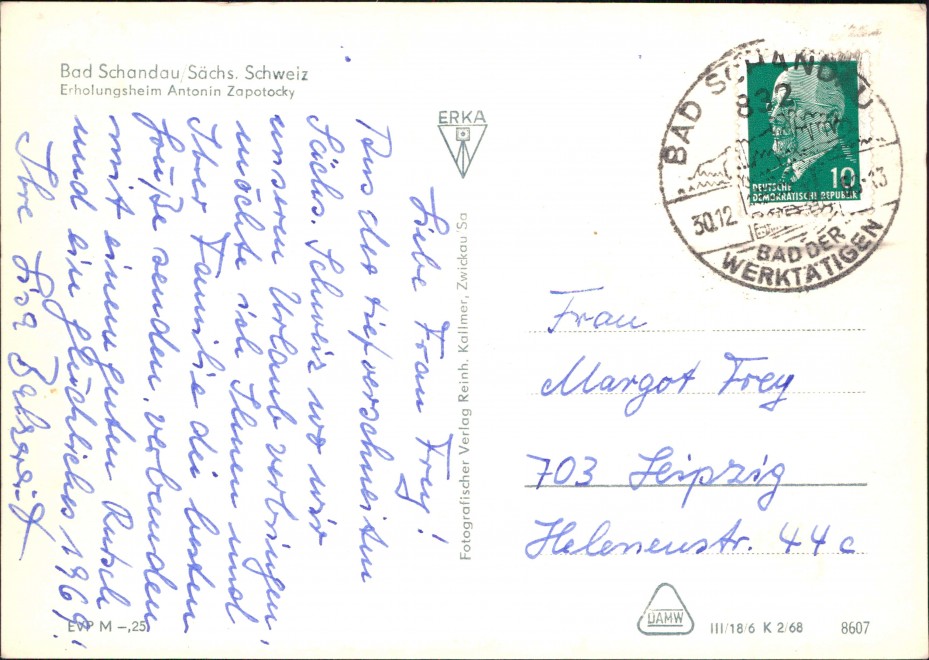 Bad Schandau/Sächs. Schweiz
Erholungsheim Antonin Zapotocky
ERKA
Fotografischer Verlag Reinh. Kallmer, Zwickau Sa
Liebe Frau Frey!
Aus der tiefverschneiten
Sächs. Schweiz wo wir
unseren Urlaub verbringen,
möchte ich Ihnen und
Ihrer Familie die besten
Grüße senden, verbunden
mit einem guten Rutsch
und ein glückliches 1969!
Ihre Lisa
EVP M -,25
BAD SCHANDAU
832
30.12
13
BAD DER
WERKTÄTIGEN
10
DEUTSCHE
DEMOKRATISCHE REPUBLIK
Frau
Margot Frey
703 Leipzig
Helenenstr. 44c
DAMW
III/18/6 K 2/68 8607